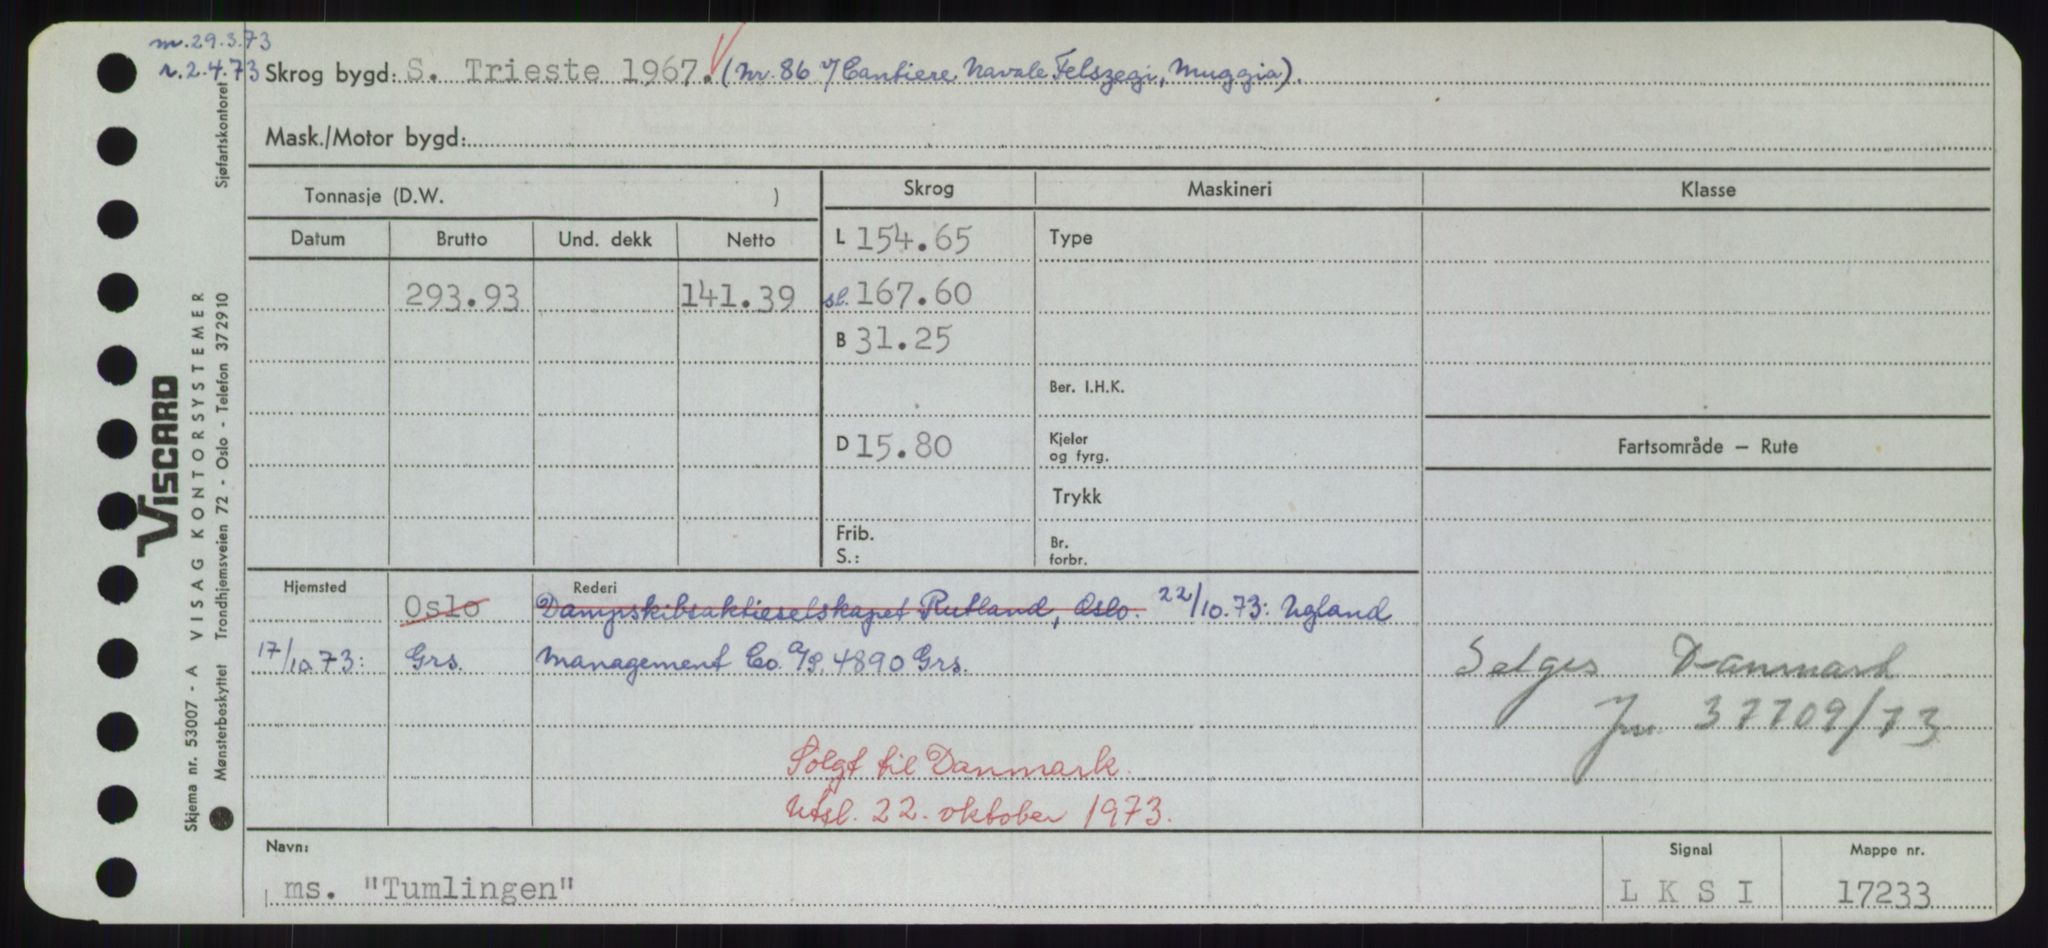 m. 29.3.73
r. 2.4.73 Skrog bygd: S. Trieste 1967. (Nr. 86 v/ Cantiere Navale Felszegi, Muggia).
Mask./Motor bygd:
Sjøfartskontoret
Tonnasje (D.W. )
Skrog
Maskineri
Klasse
Datum Brutto Und. dekk Netto
L 154.65
Type
293.93 141.39
sl. 167.60
B 31.25
Ber. I.H.K.
D 15.80
Kjeler
og fyrg.
Fartsområde – Rute
Trykk
Frib.
S.:
Br.
forbr.
Hjemsted
Oslo
Rederi
Dampskibsaktieselskapet Rutland, Oslo. 22/10.73: Ugland
17/10.73: Grs. Management Co. A/S, 4890 Grs.
Selges Danmark
Jnr. 37709/73
Solgt til Danmark.
Utsl. 22. oktober 1973.
Navn:
ms. "Tumlingen"
Signal
L K S I
Mappe nr.
17233
VISCARD
VISAG KONTORSYSTEMER
Trondhjemsveien 72 - Oslo - Telefon 372910
Skjema nr. 53007 - A
Mønsterbeskyttet